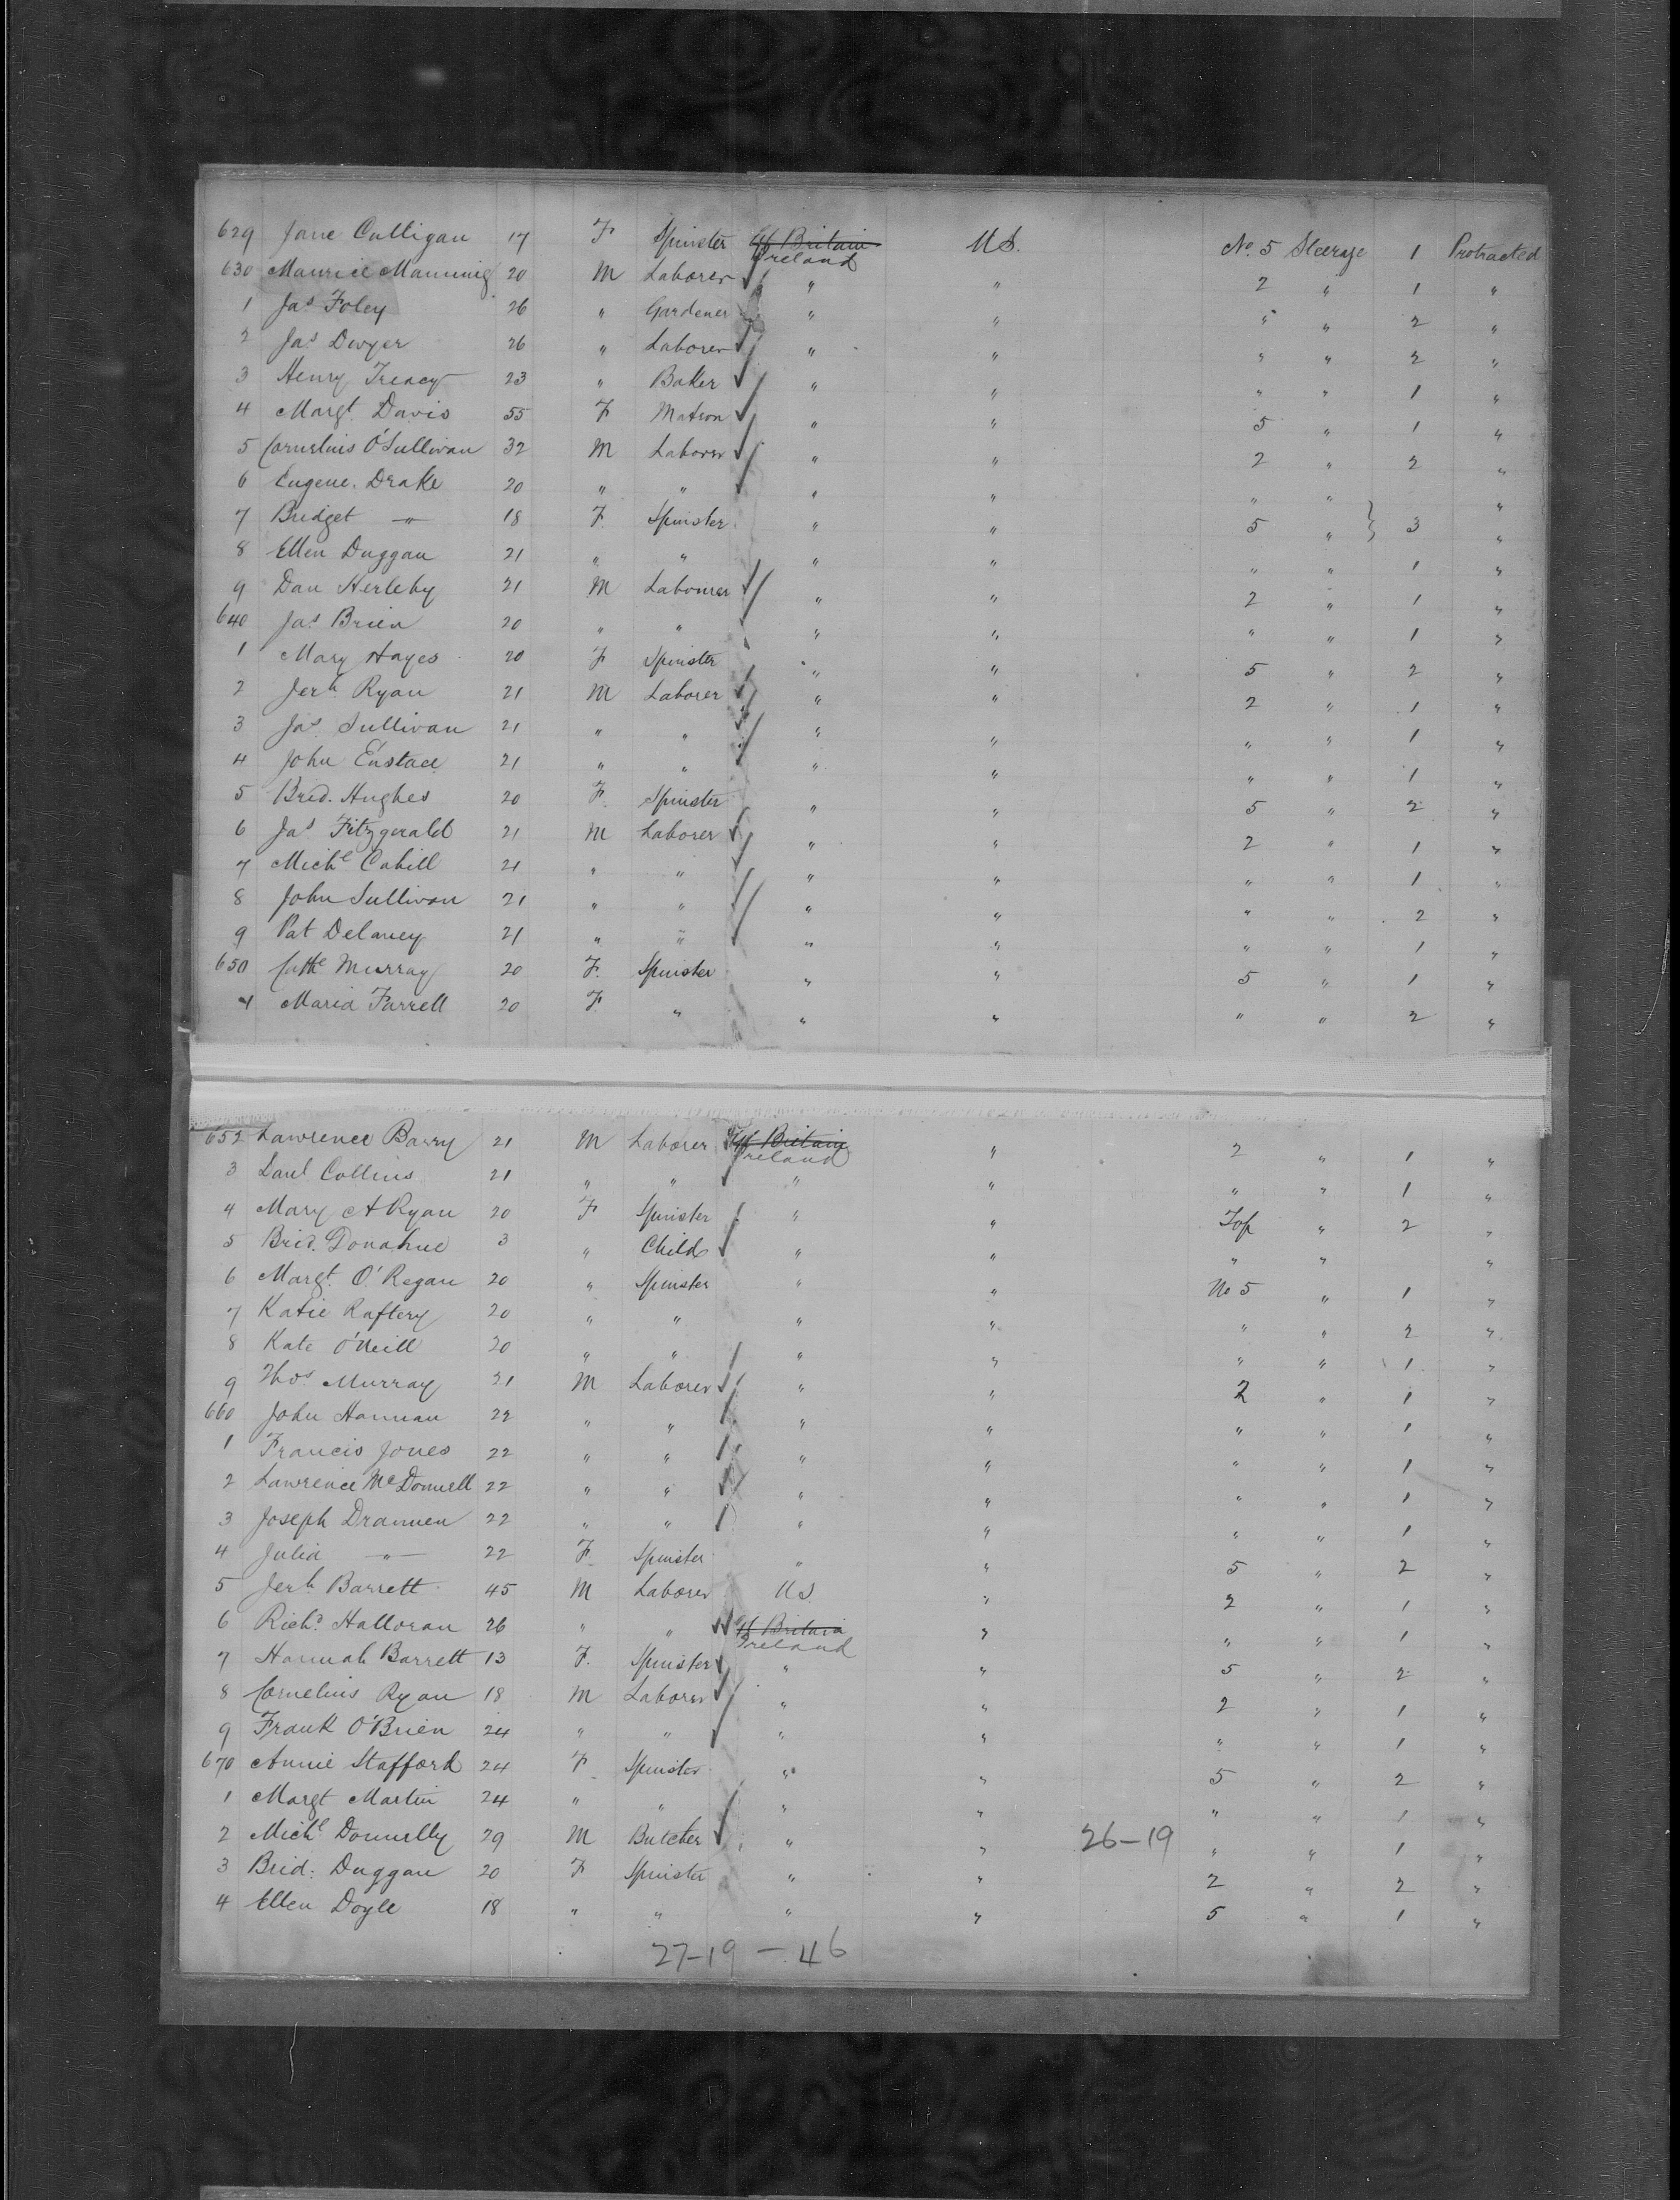 629 Jane Culligan 17 F Spinster Gt Britain Ireland U.S. No. 5 Steerage 1 Protracted
630 Maurice Manning 20 M Laborer " " 2 " 1 "
1 Jas Foley 26 " Gardener " " " " 2 "
2 Jas Dwyer 26 " Laborer " " " " 2 "
3 Henry Treacy 23 " Baker " " " " 1 "
4 Margt. Davis 55 F Matron " " 5 " 1 "
5 Cornelius O'Sullivan 32 M Laborer " " 2 " 2 "
6 Eugene Drake 20 " " " " " " "
7 Bridget " 18 F Spinster " " 5 " } 3 "
8 Ellen Duggan 21 " " " " " " 1 "
9 Dan Herlehy 21 M Labourer " " 2 " 1 "
640 Jas. Brien 20 " " " " " " 1 "
1 Mary Hayes 20 F Spinster " " 5 " 2 "
2 Jerh Ryan 21 M Laborer " " 2 " 1 "
3 Jas. Sullivan 21 " " " " " " 1 "
4 John Eustace 21 " " " " " " 1 "
5 Brid. Hughes 20 F. Spinster " " 5 " 2 "
6 Jas Fitzgerald 21 M Laborer " " 2 " 1 "
7 Michl Cahill 21 " " " " " " 1 "
8 John Sullivan 21 " " " " " " 2 "
9 Pat Delaney 21 " " " " " " 1 "
650 Cathe Murray 20 F. Spinster " " 5 " 1 "
1 Maria Farrell 20 F. " " " " " 2 "
652 Lawrence Barry 21 M Laborer Gt Britain Ireland " 2 " 1 "
3 Danl Collins 21 " " " " " " 1 "
4 Mary A Ryan 20 F Spinster " " Top " 2 "
5 Brid. Donahue 3 " Child " " " " "
6 Margt. O'Regan 20 " Spinster " " No 5 " 1 "
7 Katie Raftery 20 " " " " " " 2 "
8 Kate O'Neill 20 " " " " " " 1 "
9 Thos Murray 21 M Laborer " " 2 " 1 "
660 John Hannan 22 " " " " " " 1 "
1 Francis Jones 22 " " " " " " 1 "
2 Lawrence McDonnell 22 " " " " " " 1 "
3 Joseph Drannen 22 " " " " " " 1 "
4 Julia " 22 F. Spinster " " 5 " 2 "
5 Jerh Barrett 45 M Laborer U.S. " 2 " 1 "
6 Richd. Halloran 26 " " Gt Britain Ireland " " " 1 "
7 Hannah Barrett 13 F. Spinster " " 5 " 2 "
8 Cornelius Ryan 18 M Laborer " " 2 " 1 "
9 Frank O'Brien 24 " " " " " " 1 "
670 Annie Stafford 24 F Spinster " " 5 " 2 "
1 Margt Martin 24 " " " " " " 1 "
2 Michl Donnelly 29 M Butcher " " 26-19 " " 1 "
3 Brid: Duggan 20 F Spinster " " 2 " 2 "
4 Ellen Doyle 18 " " " " 5 " 1 "
27-19 - 46